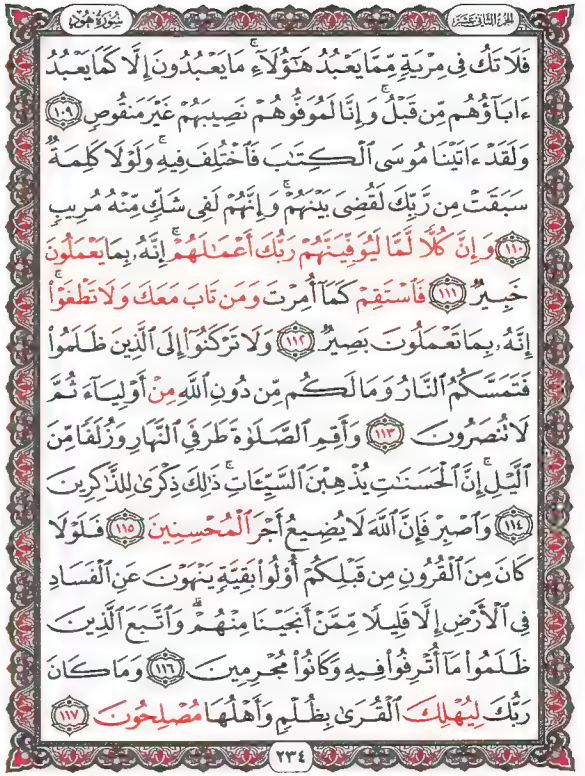 سُورَةُ هُودٍ الجُزءُ الثَّانِي عَشَرَ
فَلَا تَكُ فِى مِرْيَةٍ مِّمَّا يَعْبُدُ هَٰٓؤُلَآءِ ۚ مَا يَعْبُدُونَ إِلَّا كَمَا يَعْبُدُ
ءَابَآؤُهُم مِّن قَبْلُ ۚ وَإِنَّا لَمُوَفُّوهُمْ نَصِيبَهُمْ غَيْرَ مَنقُوصٍ ﴿١٠٩﴾
وَلَقَدْ ءَاتَيْنَا مُوسَى ٱلْكِتَٰبَ فَٱخْتُلِفَ فِيهِ ۚ وَلَوْلَا كَلِمَةٌ
سَبَقَتْ مِن رَّبِّكَ لَقُضِىَ بَيْنَهُمْ ۚ وَإِنَّهُمْ لَفِى شَكٍّ مِّنْهُ مُرِيبٍ
﴿١١٠﴾ وَإِنَّ كُلًّا لَّمَّا لَيُوَفِّيَنَّهُمْ رَبُّكَ أَعْمَٰلَهُمْ ۚ إِنَّهُۥ بِمَا يَعْمَلُونَ
خَبِيرٌ ﴿١١١﴾ فَٱسْتَقِمْ كَمَآ أُمِرْتَ وَمَن تَابَ مَعَكَ وَلَا تَطْغَوْا۟ ۚ
إِنَّهُۥ بِمَا تَعْمَلُونَ بَصِيرٌ ﴿١١٢﴾ وَلَا تَرْكَنُوٓا۟ إِلَى ٱلَّذِينَ ظَلَمُوا۟
فَتَمَسَّكُمُ ٱلنَّارُ وَمَا لَكُم مِّن دُونِ ٱللَّهِ مِنْ أَوْلِيَآءَ ثُمَّ
لَا تُنصَرُونَ ﴿١١٣﴾ وَأَقِمِ ٱلصَّلَوٰةَ طَرَفَىِ ٱلنَّهَارِ وَزُلَفًا مِّنَ
ٱلَّيْلِ ۚ إِنَّ ٱلْحَسَنَٰتِ يُذْهِبْنَ ٱلسَّيِّـَٔاتِ ۚ ذَٰلِكَ ذِكْرَىٰ لِلذَّٰكِرِينَ
﴿١١٤﴾ وَٱصْبِرْ فَإِنَّ ٱللَّهَ لَا يُضِيعُ أَجْرَ ٱلْمُحْسِنِينَ ﴿١١٥﴾ فَلَوْلَا
كَانَ مِنَ ٱلْقُرُونِ مِن قَبْلِكُمْ أُو۟لُوا۟ بَقِيَّةٍ يَنْهَوْنَ عَنِ ٱلْفَسَادِ
فِى ٱلْأَرْضِ إِلَّا قَلِيلًا مِّمَّنْ أَنجَيْنَا مِنْهُمْ ۗ وَٱتَّبَعَ ٱلَّذِينَ
ظَلَمُوا۟ مَآ أُتْرِفُوا۟ فِيهِ وَكَانُوا۟ مُجْرِمِينَ ﴿١١٦﴾ وَمَا كَانَ
رَبُّكَ لِيُهْلِكَ ٱلْقُرَىٰ بِظُلْمٍ وَأَهْلُهَا مُصْلِحُونَ ﴿١١٧﴾
٢٣٤